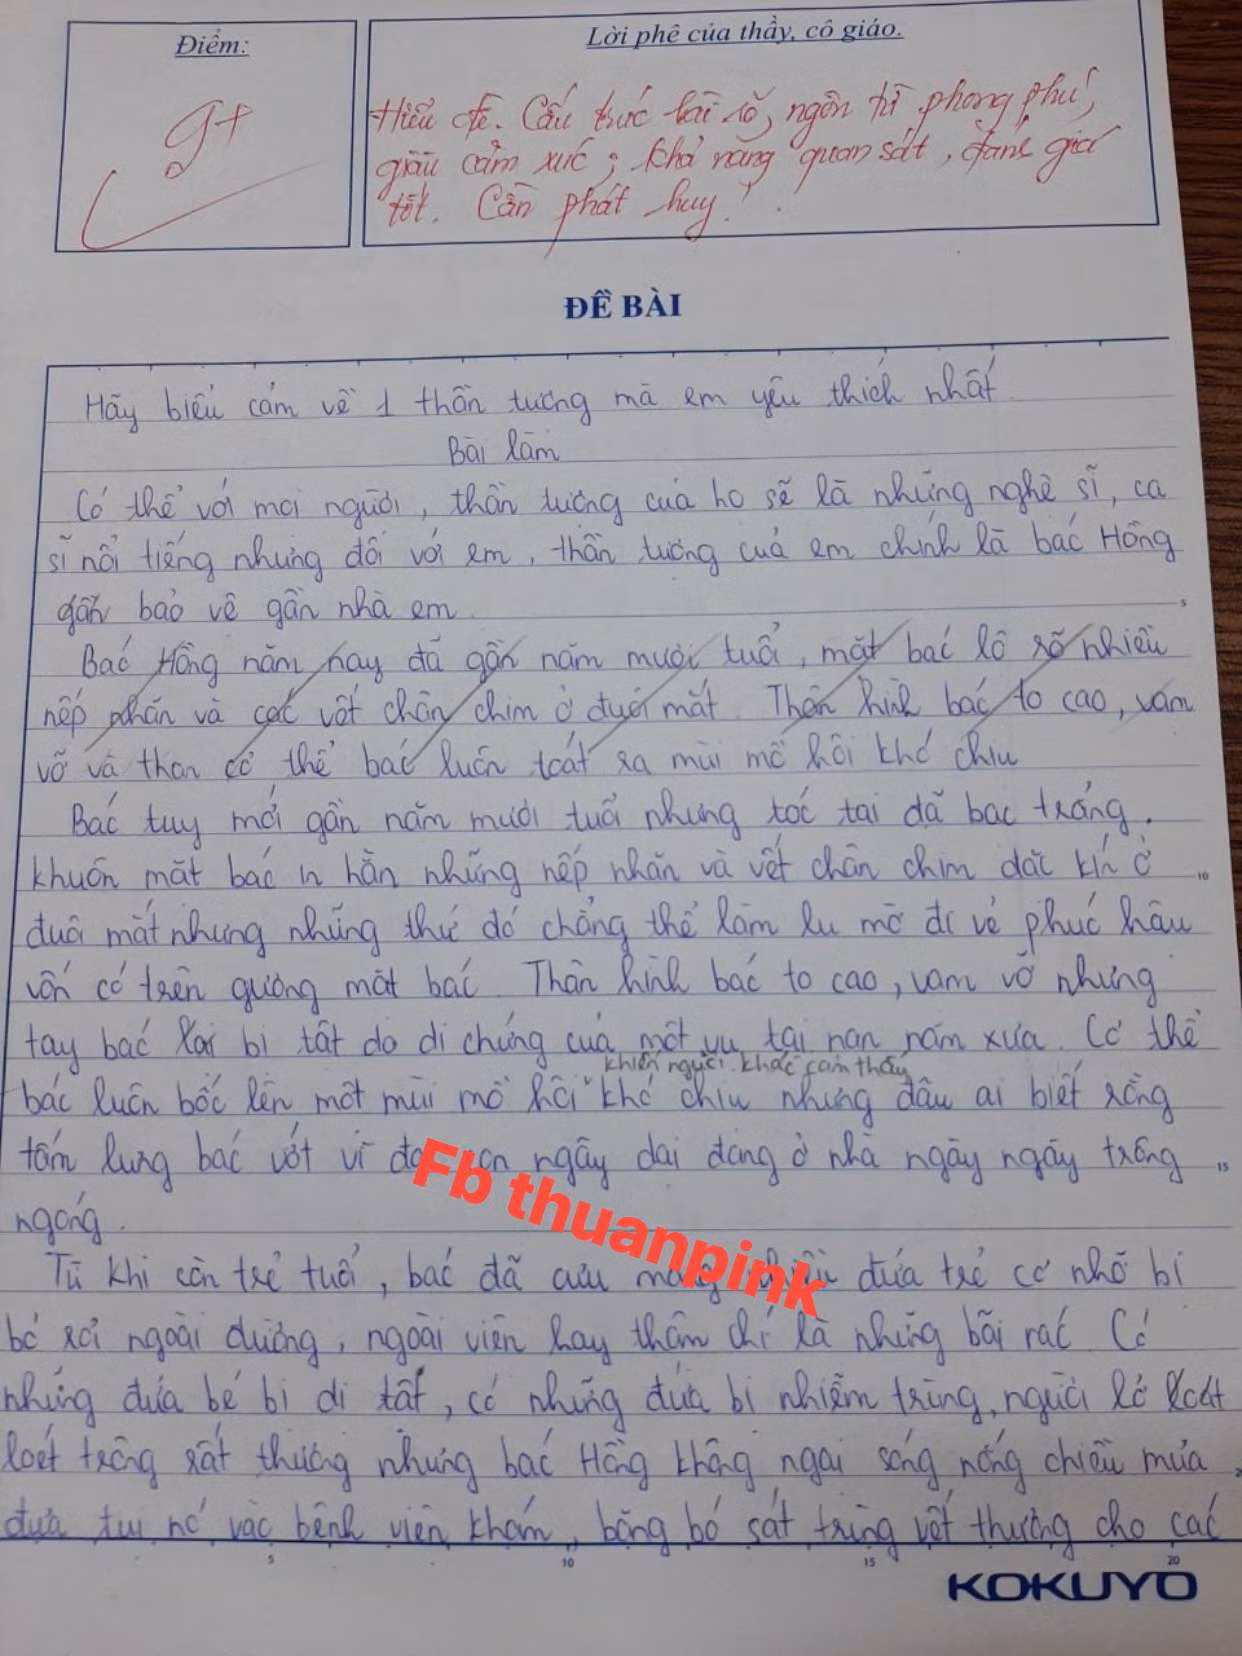 Điểm:
Lời phê của thầy, cô giáo.
9+
Hiểu đề. Cấu trúc bài rõ, ngôn từ phong phú,
giàu cảm xúc; khả năng quan sát, đánh giá
tốt. Cần phát huy!
ĐỀ BÀI
Hãy biểu cảm về 1 thần tượng mà em yêu thích nhất
Bài làm
Có thể với mọi người, thần tượng của họ sẽ là những nghệ sĩ, ca
sĩ nổi tiếng nhưng đối với em, thần tượng của em chính là bác Hồng
gần bảo vệ gần nhà em.
Bác Hồng năm nay đã gần năm mươi tuổi, mặt bác lộ rõ nhiều
nếp nhăn và các vết chân chim ở đuôi mắt. Thân hình bác to cao, vạm
vỡ và thân cơ thể bác luôn toát ra mùi mồ hôi khó chịu
Bác tuy mới gần năm mươi tuổi nhưng tóc tai đã bạc trắng.
khuôn mặt bác in hằn những nếp nhăn và vết chân chim dặc kín ở
đuôi mắt nhưng những thứ đó chẳng thể làm lu mờ đi vẻ phúc hậu
vốn có trên gương mặt bác. Thân hình bác to cao, vạm vỡ nhưng
tay bác lại bị tật do di chứng của một vụ tai nạn năm xưa. Cơ thể
khiến người khác cảm thấy
bác luôn bốc lên một mùi mồ hôi khó chịu nhưng đâu ai biết rằng
tấm lưng bác ướt vì ngây dại đang ở nhà ngày ngày trông
ngóng.
Fb thuanpink
Từ khi còn trẻ tuổi, bác đã cưu mang nhiều đứa trẻ cơ nhỡ bị
bỏ rơi ngoài đường, ngoài viện hay thậm chí là những bãi rác. Có
những đứa bé bị dị tật, có những đứa bị nhiễm trùng, người lở loét
loét trông rất thương nhưng bác Hồng không ngại sáng nắng chiều mưa
đưa tụi nó vào bệnh viện khám, băng bó sát trùng vết thương cho các
5
10
15
5
10
15
20
KOKUYO